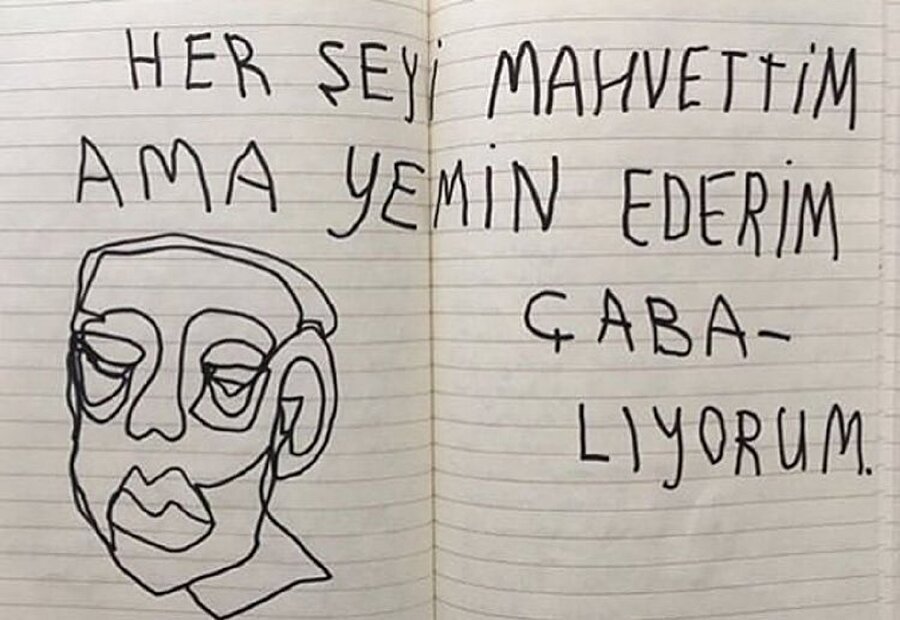 HER ŞEYİ MAHVETTİM
AMA YEMİN EDERİM
ÇABA-
LIYORUM.